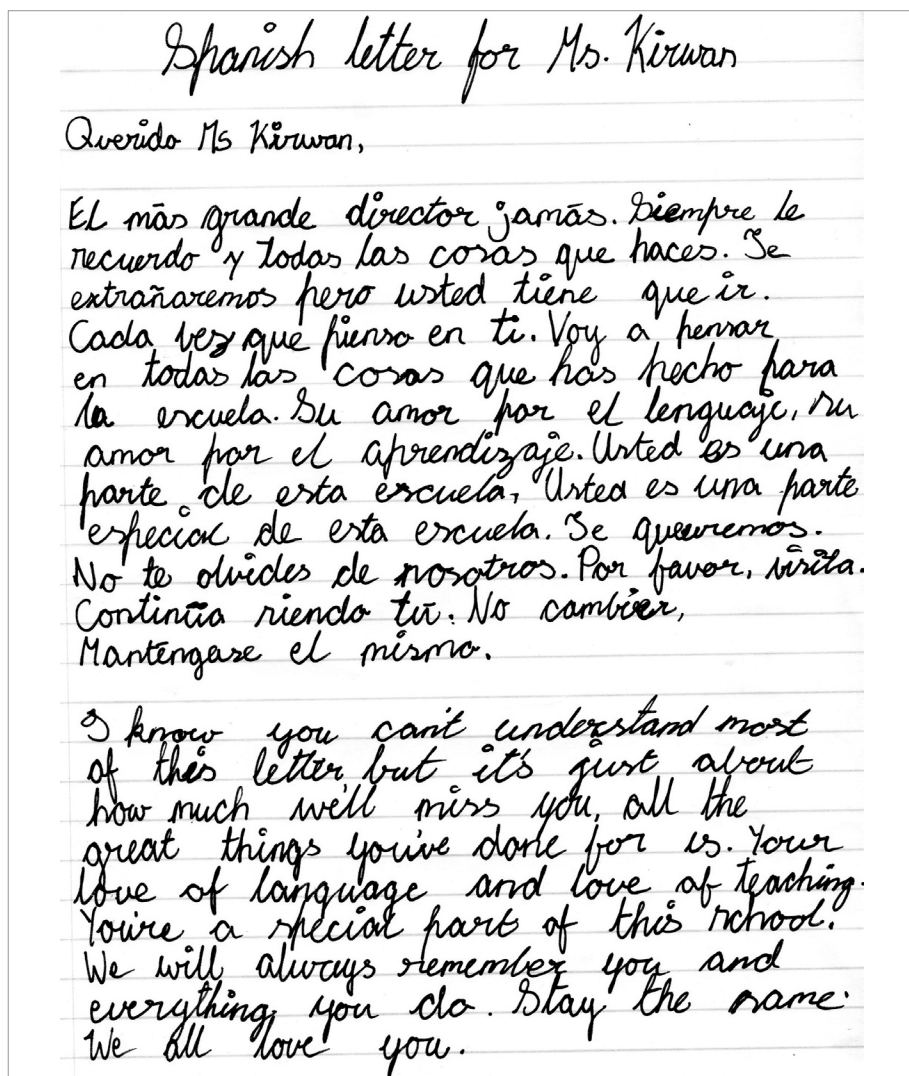 Spanish letter for Ms. Kirwan
Querido Ms Kirwan,
EL más grande director jamás. Siempre le
recuerdo y todas las cosas que haces. Te
extrañaremos pero usted tiene que ir.
Cada vez que pienso en ti. Voy a pensar
en todas las cosas que has hecho para
la escuela. Su amor por el lenguaje, su
amor por el aprendizaje. Usted es una
parte de esta escuela, Usted es una parte
especial de esta escuela. Te queuremos.
No te olvides de nosotros. Por favor, visita.
Continúa siendo tú. No cambier,
Manténgase el mismo.
I know you can't understand most
of this letter but it's just about
how much we'll miss you, all the
great things you've done for us. Your
love of language and love of teaching.
You're a special part of this school.
We will always remember you and
everything you do. Stay the same.
We all love you.